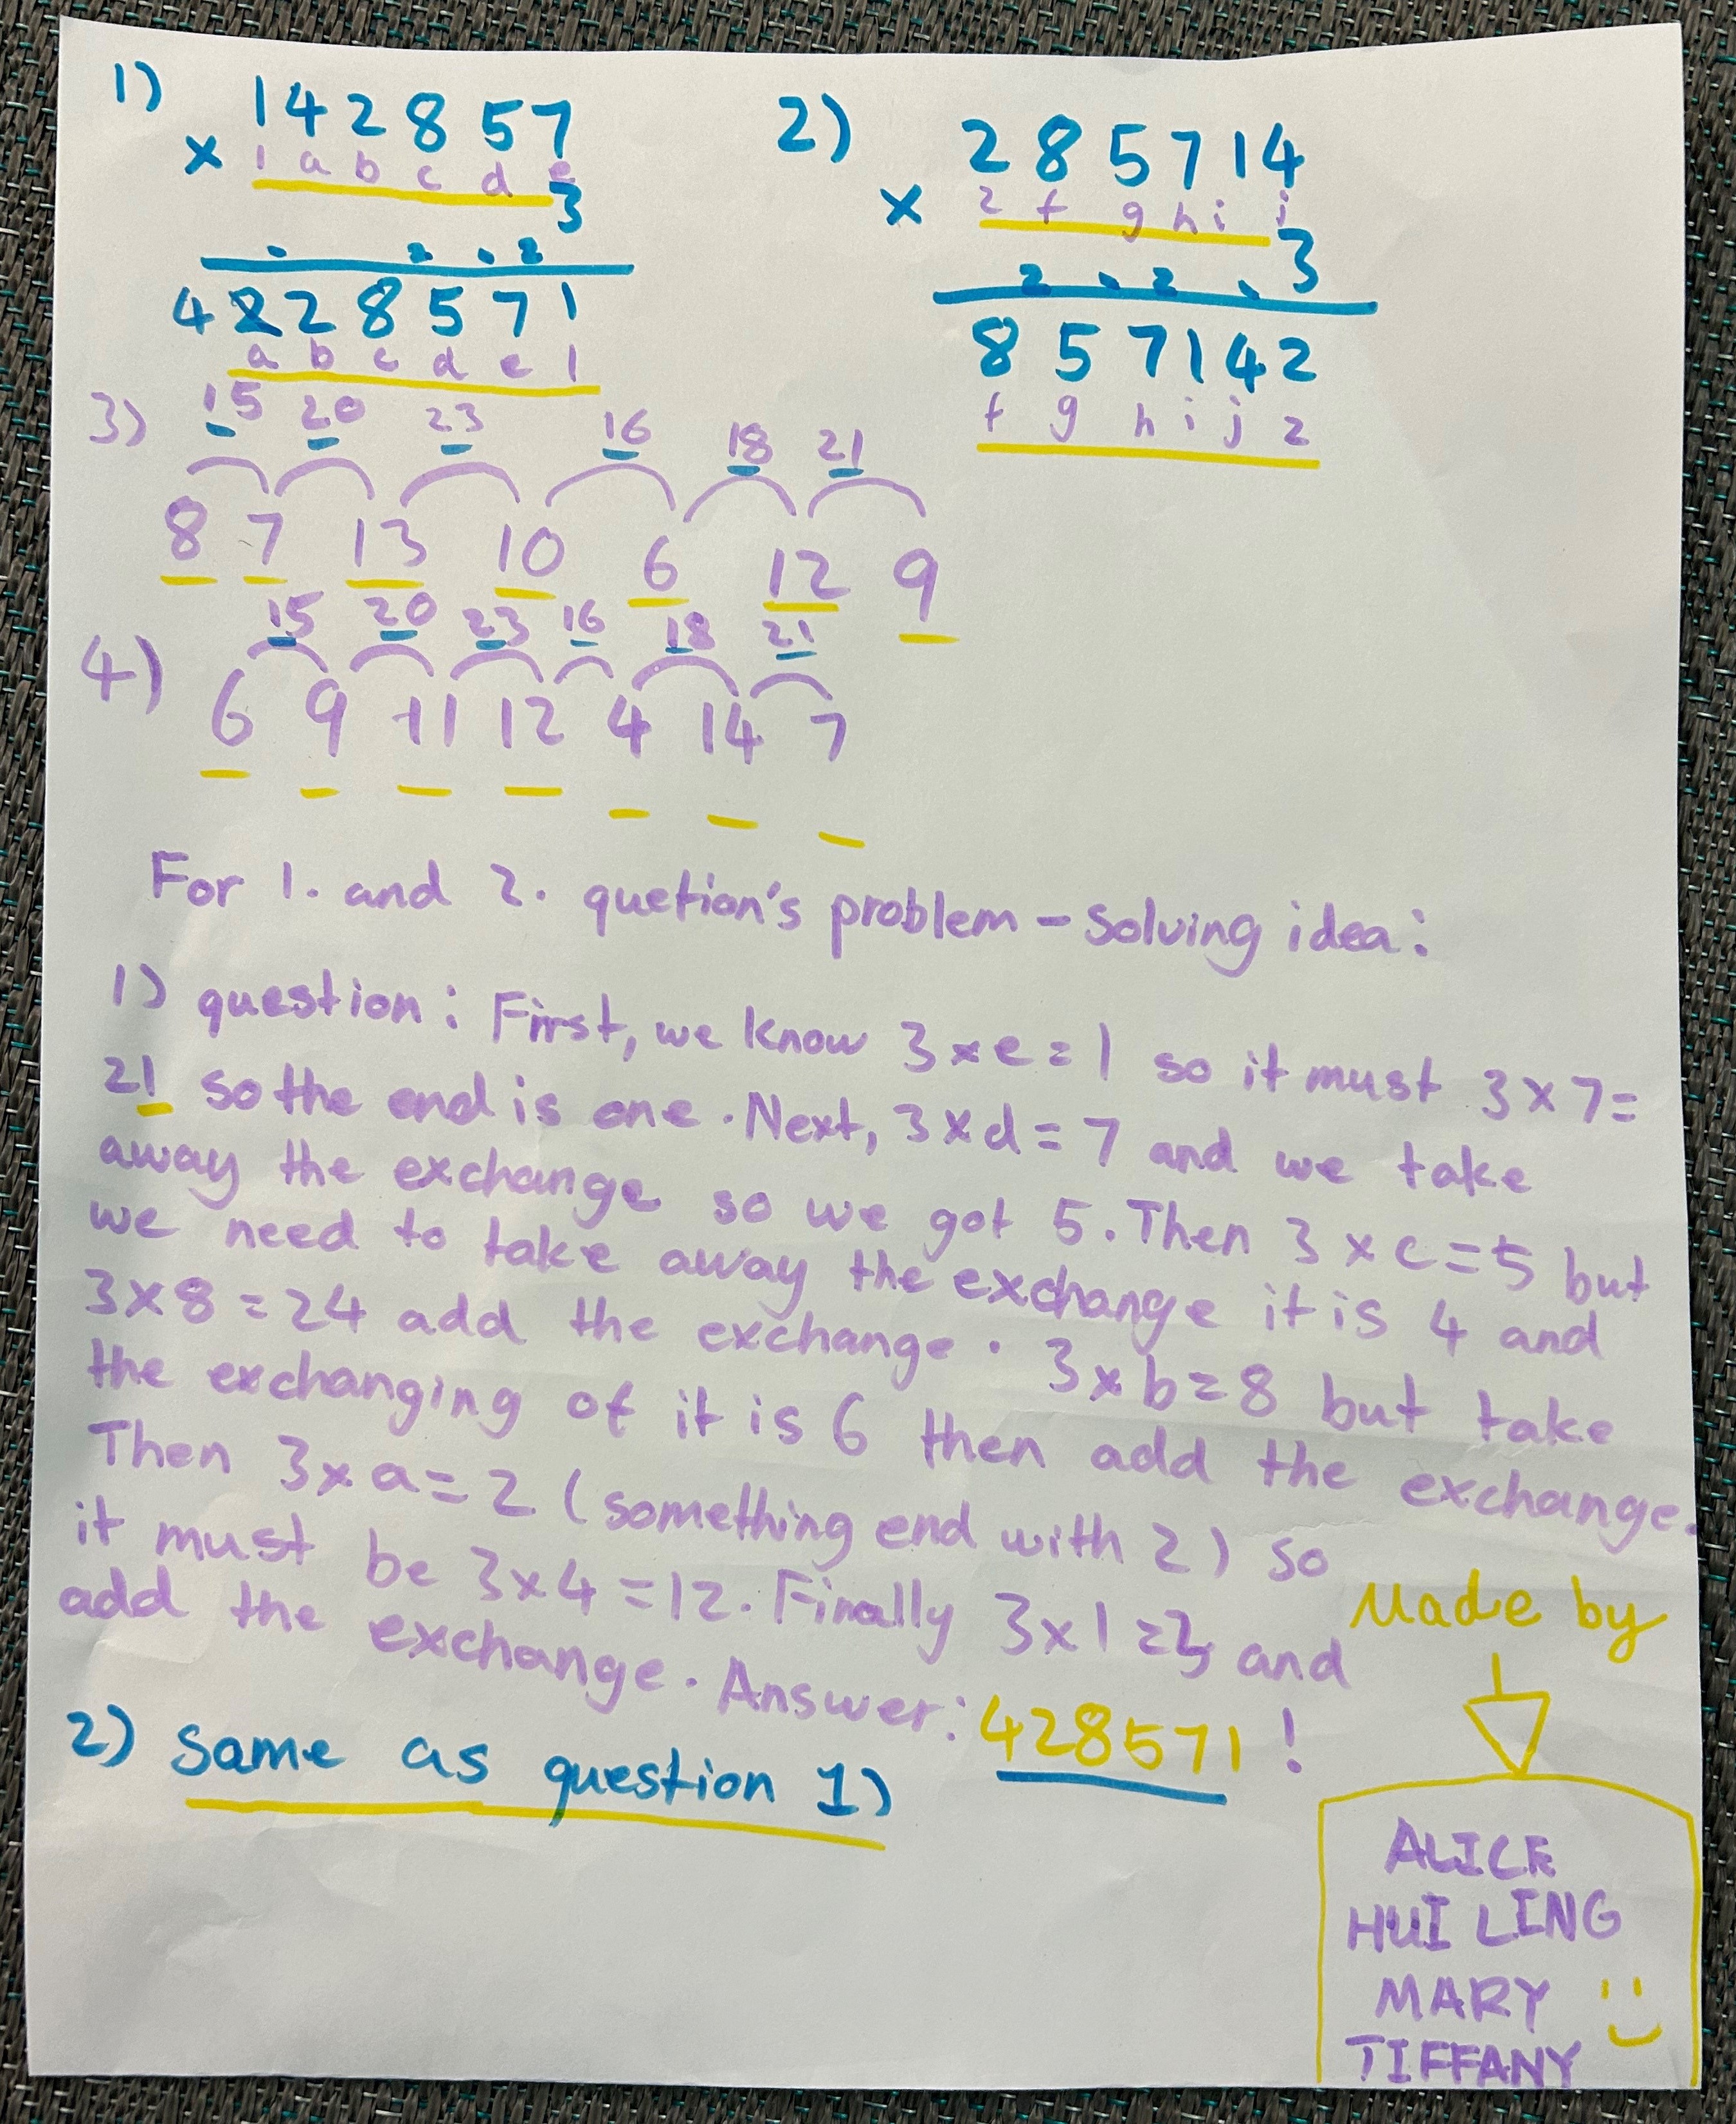 1) 142857
x 1abcde
3
2 1 2
4 2 2 8 5 7 1
a b c d e 1
2) 285714
x 2 f g h i j
3
2 1 2 1
857142
f g h i j 2
3) 15 20 23 16 18 21
8 7 13 10 6 12 9
15 20 23 16 18 21
4) 6 9 11 12 4 14 7
For 1. and 2. quetion's problem - solving idea:
1) question: First, we know 3×e=1 so it must 3×7=
21 so the end is one. Next, 3×d=7 and we take
away the exchange so we got 5. Then 3×c=5 but
we need to take away the exchange it is 4 and
3×8=24 add the exchange. 3×b=8 but take
the exchanging of it is 6 then add the exchange.
Then 3×a=2 (something end with 2) so
it must be 3×4=12. Finally 3×1=3 and
add the exchange. Answer: 428571!
2) same as question 1)
Made by
ALICE
HUI LING
MARY
TIFFANY